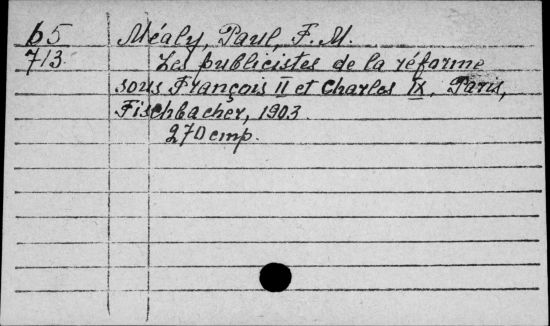 b5 Méaly, Paul, F. M.
713 Les publicistes de la réforme
sous François II et Charles IX, Paris,
Fischbacher, 1903.
270 стр.